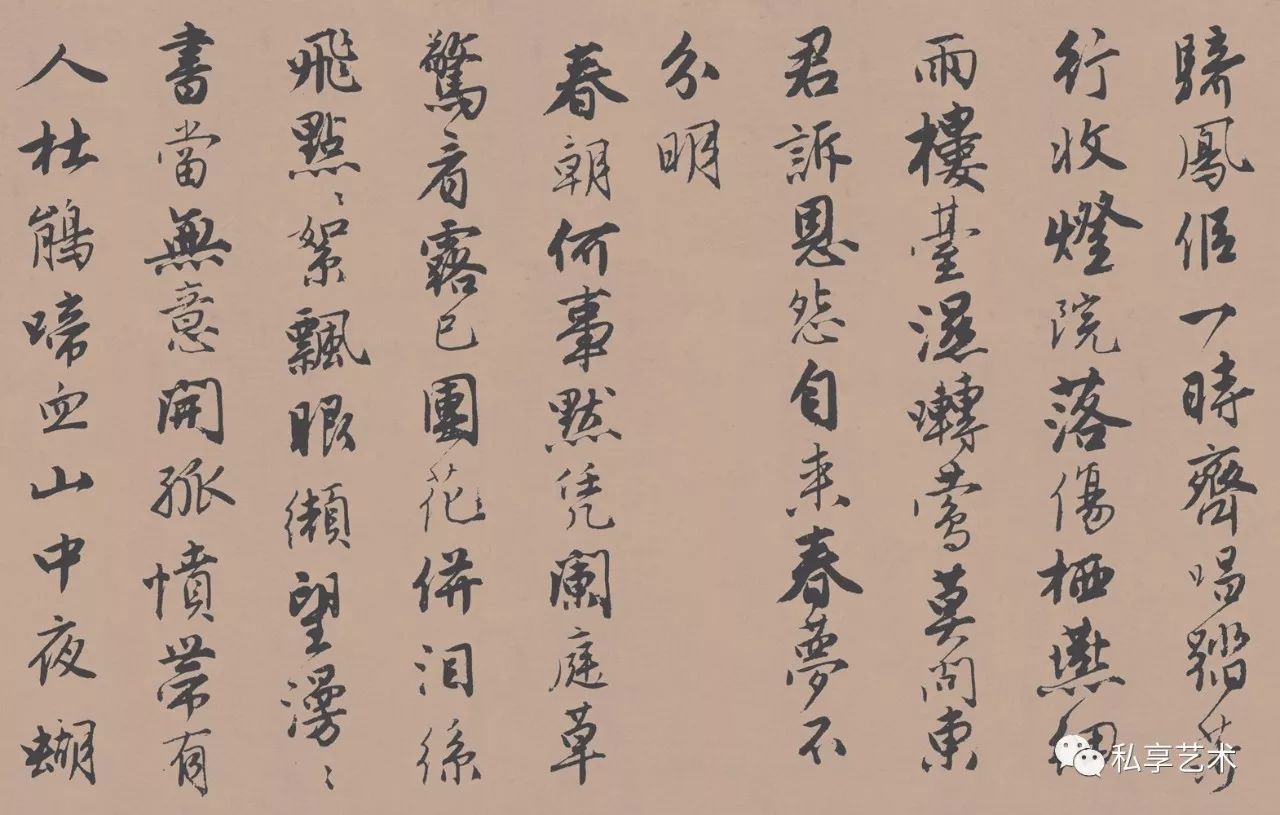 騎鳳侣一時齊唱踏莎
行收燈院落傷栖燕細
雨樓臺濕囀鶯莫問東
君訴恩怨自来春夢不
分明
春朝何事黙凭闌庭草
驚看露已團花併泪絲
飛點〻絮飄眼纈望漫〻
書當無意開孤憤帶有
人杜鵑啼血山中夜蝴
私享艺术